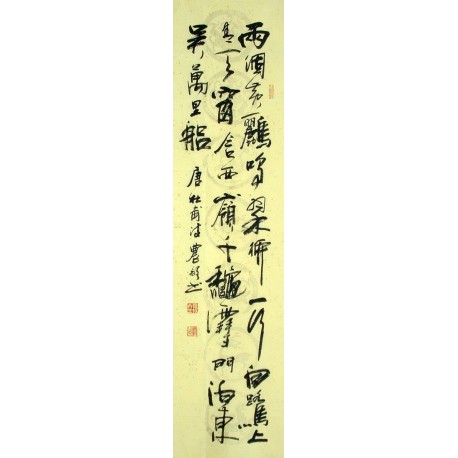 兩個黃鸝鳴翠柳一行白鷺上
青天窗含西嶺千龝雪門泊東
吳萬里船
唐杜甫詩農书